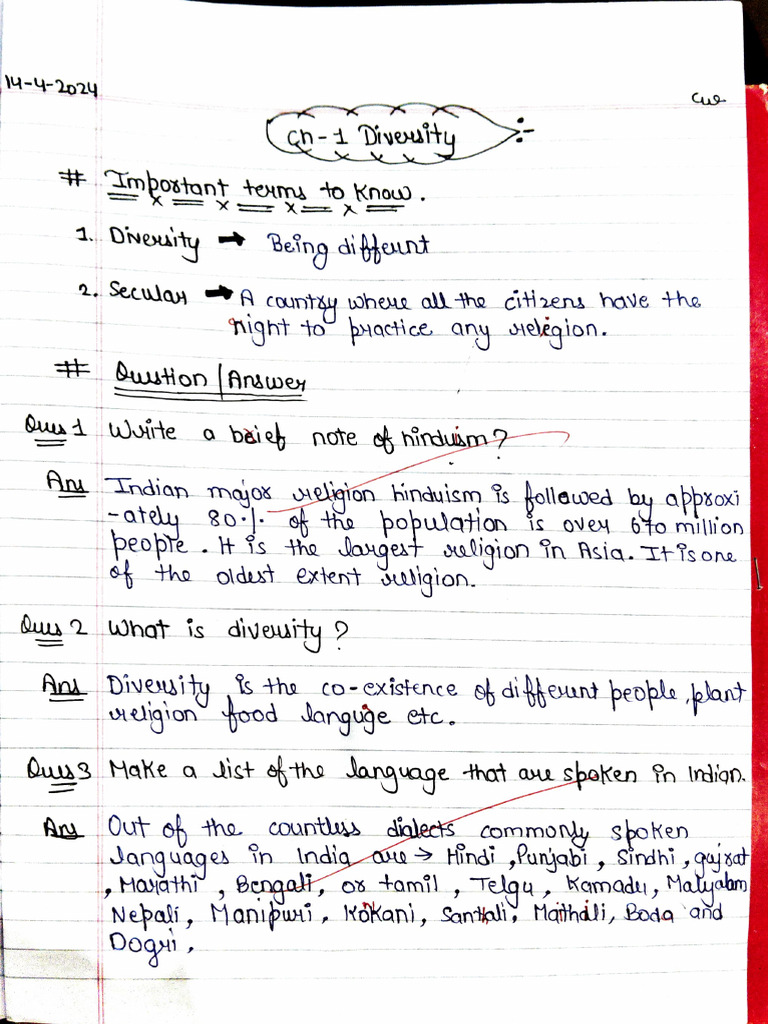 14-4-2024
CW
Ch-1 Diversity :-
# Important terms to know.
1. Diversity → Being different
2. Secular → A country where all the citizens have the
right to practice any religion.
# Question/Answer
Ques 1 Write a brief note of hinduism?
Ans Indian major religion hinduism is followed by approxi
-ately 80% of the population is over 670 million
people. It is the largest religion in Asia. It is one
of the oldest extent religion.
Ques 2 What is diversity?
Ans Diversity is the co-existence of different people, plant
religion food languge etc.
Ques 3 Make a list of the language that are spoken in Indian.
Ans Out of the countless dialects commonly spoken
languages in India are → Hindi, Punjabi, Sindhi, gujrat
, Marathi, Bengali, or tamil, Telgu, Kamadu, Malyalam
Nepali, Manipuri, Kokani, Santhali, Maithili, Boda and
Dogri,